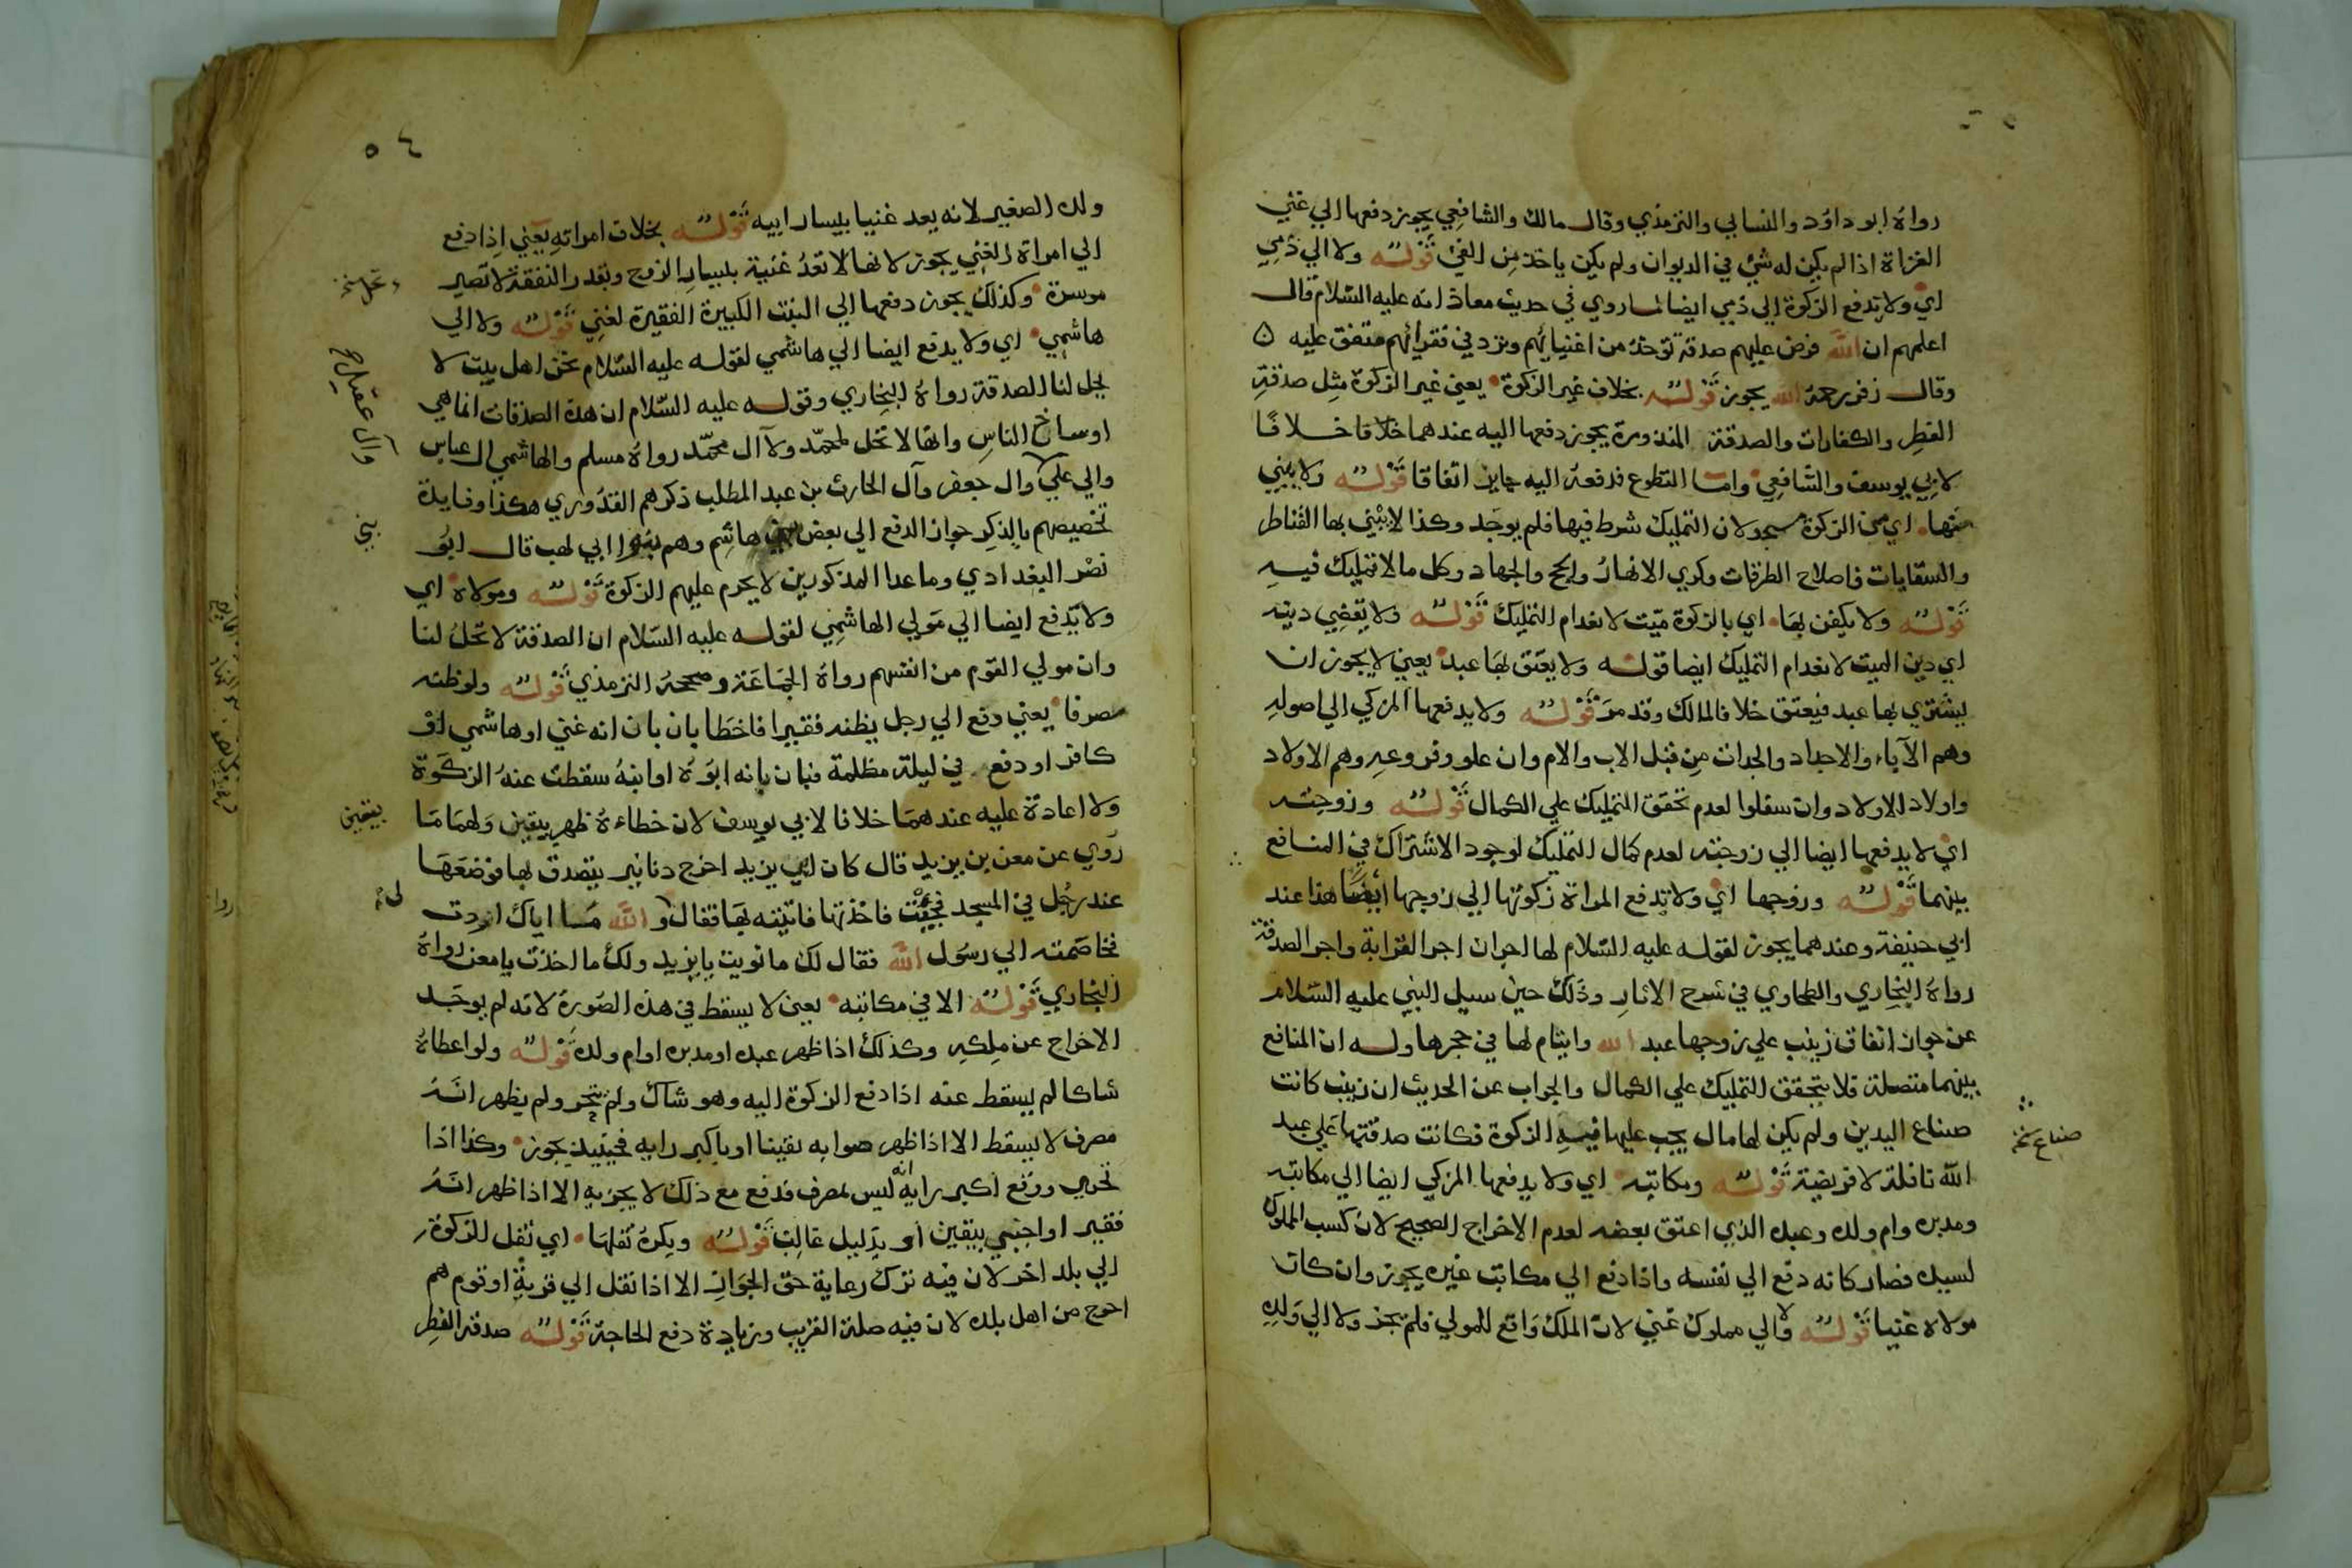 رواه ابو داود والنسايي والترمذي وقال مالك والشافعي يجوز دفعها الي غني
الغزاة اذا لم يكن له شئ في الديوان ولم يكن ياخذ من الفئ قوله ولا الي ذمي
اي ولا تدفع الزكوة الي ذمي ايضا لما روي في حديث معاذ انه عليه السلام قال
اعلمهم ان الله فرض عليهم صدقة توخذ من اغنيائهم وترد في فقرائهم متفق عليه
وقال زفر رحمه الله يجوز قوله بخلاف غير الزكوة يعني غير الزكوة مثل صدقة
الفطر والكفارات والصدقة المنذورة يجوز دفعها اليه عندهما خلافا
لابي يوسف والشافعي واما التطوع فدفعه اليه جايز اتفاقا قوله ولا يبني
منها اي من الزكوة مسجد لان التمليك شرط فيها فلم يوجد وكذا لا يبني بها القناطر
والسقايات واصلاح الطرقات وكري الانهار والحج والجهاد وكل ما لا تمليك فيه
قوله ولا يكفن بها اي بالزكوة ميت لانعدام التمليك قوله ولا يقضي دينه
اي دين الميت لانعدام التمليك ايضا قوله ولا يعتق بها عبد يعني لا يجوز ان
يشتري بها عبد فيعتق خلافا لمالك وقد مر قوله ولا يدفعها المزكي الي اصوله
وهم الآباء والاجداد والجدات من قبل الاب والام وان علو وفروعه وهم الاولاد
واولاد الاولاد وان سفلوا لعدم تحقق التمليك علي الكمال قوله وزوجته
اي لا يدفعها ايضا الي زوجته لعدم كمال التمليك لوجود الاشتراك في المنافع
بينهما قوله وزوجها اي ولا تدفع المراة زكوتها الي زوجها أيضا هذا عند
ابي حنيفة وعندهما يجوز لقوله عليه السلام لها اجران اجر القرابة واجر الصدقة
رواه البخاري والطحاوي في شرح الاثار وذلك حين سيل النبي عليه السلام
عن جواز انفاق زينب علي زوجها عبد الله وايتام لها في حجرها وله ان المنافع
بينهما متصلة فلا يتحقق التمليك علي الكمال والجواب عن الحديث ان زينب كانت
صناع اليدين ولم يكن لها مال يجب عليها فيه الزكوة فكانت صدقتها علي عبد
صناع نخ
الله نافلة لا فريضة قوله ومكاتبه اي ولا يدفعها المزكي ايضا الي مكاتبه
ومدبره وام ولده وعبده الذي اعتق بعضه لعدم الاخراج الصحيح لان كسب المملوك
لسيده فصار كانه دفع الي نفسه واذا دفع الي مكاتب غيره يجوز وان كان
مولاه غنيا قوله ولا الي مملوك غني لان الملك واقع للمولي فلم يجز ولا الي ولده
٥٤
ولده الصغير لانه يعد غنيا بيسار ابيه قوله بخلاف امراته يعني اذا دفع
الي امراة الغني يجوز لانها لا تعد غنية بيسار الزوج وبقدر النفقة لا تصير
موسرة وكذلك يجوز دفعها الي البنت الكبيرة الفقيرة لغني قوله ولا الي
هاشمي اي ولا يدفع ايضا الي هاشمي لقوله عليه السلام نحن اهل بيت لا
تحل لنا الصدقة رواه البخاري وقوله عليه السلام ان هذه الصدقات انما هي
اوساخ الناس وانها لا تحل لمحمد ولا آل محمد رواه مسلم والهاشمي ال عباس
وآل عقيل صح
وال علي وال جعفر وآل الحارث بن عبد المطلب ذكرهم القدوري هكذا وفايدة
تخصيصهم بالذكر جواز الدفع الي بعض بني هاشم وهم بنو ابي لهب قال ابو
بني
نصر البغدادي وما عدا المذكورين لا يحرم عليهم الزكوة قوله ومولاه اي
ولا يدفع ايضا الي مولي الهاشمي لقوله عليه السلام ان الصدقة لا تحل لنا
وان مولي القوم من انفسهم رواه الجماعة وصححه الترمذي قوله ولو ظنه
مصرفا يعني دفع الي رجل يظنه فقيرا فاخطا بان بان انه غني او هاشمي او
كافر او دفع في ليلة مظلمة فبان بانه ابوه او ابنه سقطت عنه الزكوة
ولا اعادة عليه عندهما خلافا لابي يوسف لان خطاءه ظهر بيقين ولهما ما
بيقين
روي عن معن بن يزيد قال كان ابي يزيد اخرج دنانير يتصدق بها فوضعها
عند رجل في المسجد فجيت فاخذتها فاتيته بها فقال والله ما اياك اردت
فخاصمته الي رسول الله فقال لك ما نويت يا يزيد ولك ما اخذت يا معن رواه
البخاري قوله الا في مكاتبه يعني لا يسقط في هذه الصورة لانه لم يوجد
الاخراج عن ملكه وكذلك اذا ظهر عبده او مدبره او ام ولده قوله ولو اعطاه
شاكا لم يسقط عنه اذا دفع الزكوة اليه وهو شاك ولم يتحر ولم يظهر انه
مصرف لا يسقط الا اذا ظهر صوابه يقينا او باكبر رايه فحينيذ يجوز وكذا اذا
تحري ووقع اكبر رايه انه ليس بمصرف فدفع مع ذلك لا يجزيه الا اذا ظهر انه
فقير او اجنبي بيقين او بدليل غالب قوله ويكره نقلها اي نقل الزكوة
الي بلد اخر لان فيه ترك رعاية حق الجوار الا اذا نقل الي قريبة او قوم هم
احوج من اهل بلده لان فيه صلة القريب وزيادة دفع الحاجة قوله صدقة الفطر